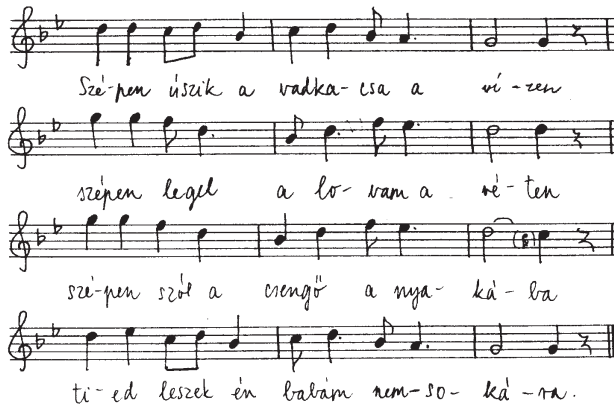 Szé-pen úszik a vadka-csa a ví-zen
szépen legel a lo-vam a ré-ten
szé-pen szól a csengő a nya-ká-ba
ti-ed leszek én babám nem-so-ká-ra.